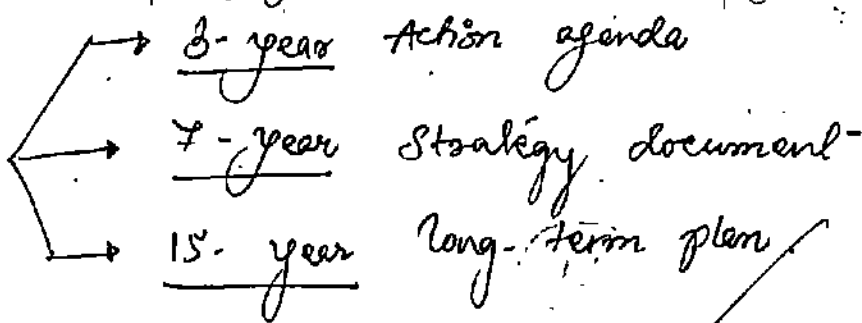 3-year Action agenda
7-year Strategy document
15-year long-term plan